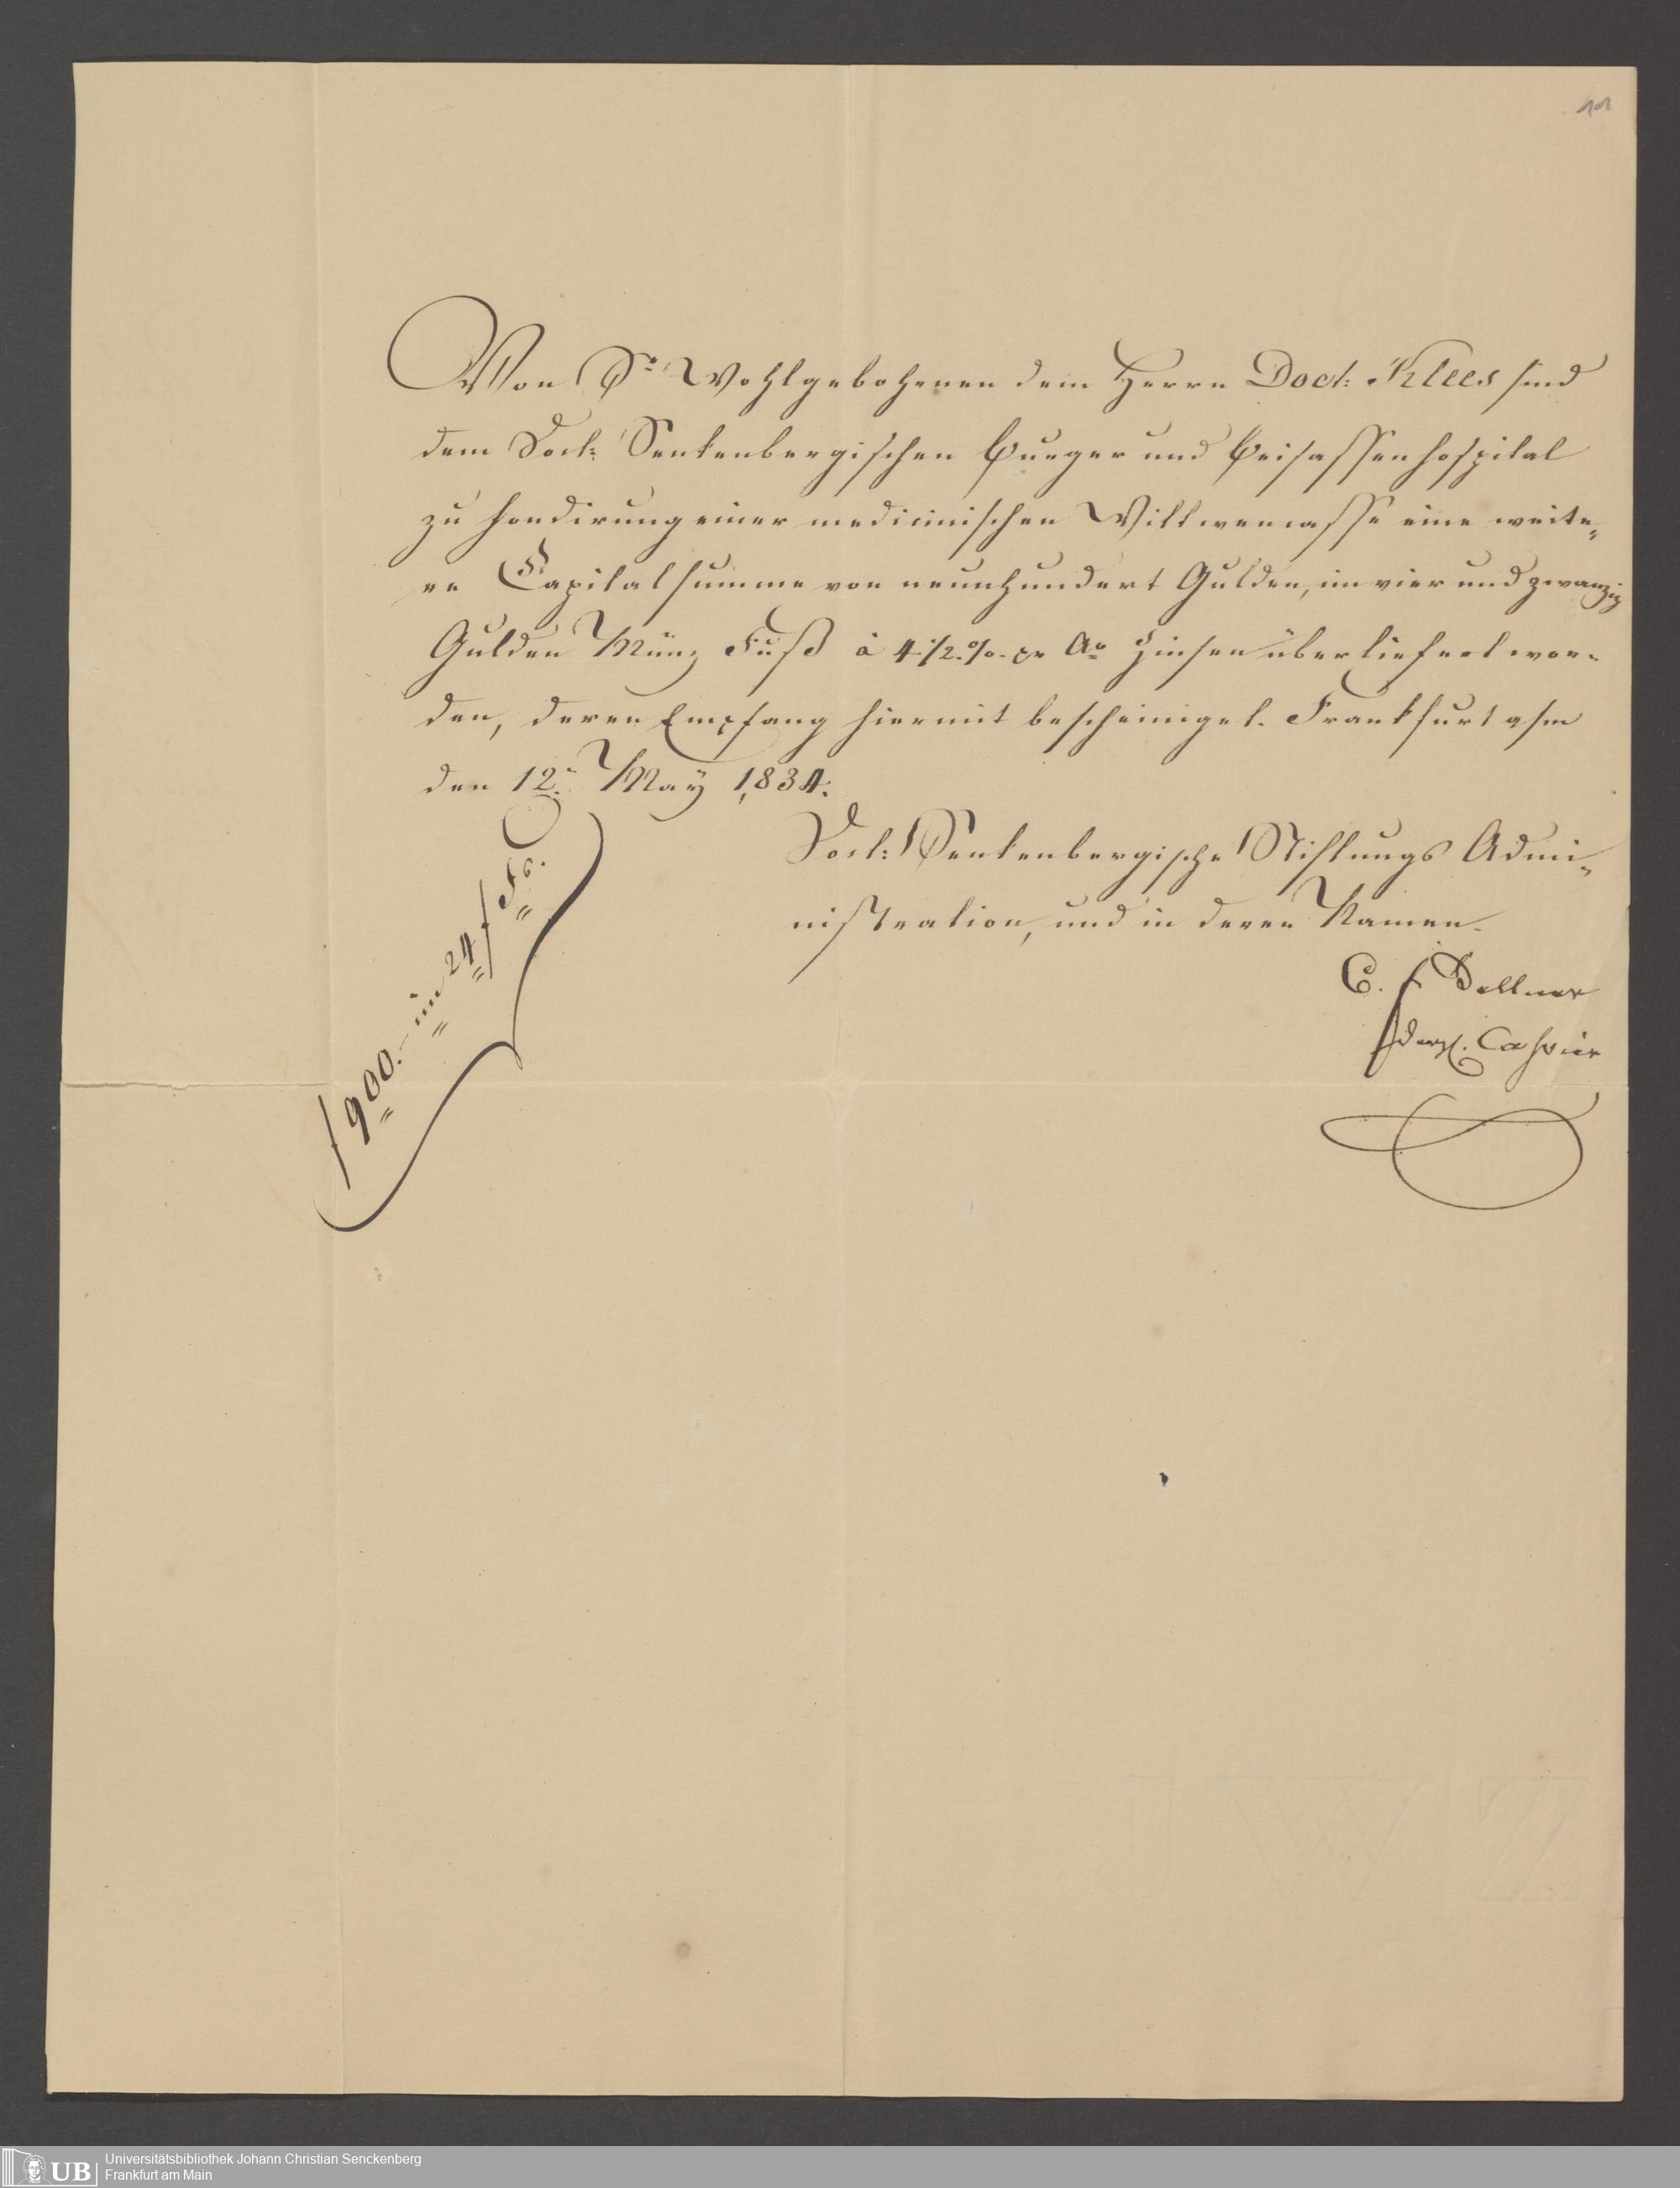 101
Von Sr Wohlgebohrenen dem Herrn Doct: Klees sind
dem Doct: Senkenbergischen Burger und Beisassenhospital
zu Fondirung einer medicinischen Wittwencasse eine weite„
re Capitalsumme von neunhundert Gulden, im vier und zwanzig
Gulden Münz Fuß à 4 1/2 % pr Ao Zinsen überliefert wor-
den, deren Empfang hiermit bescheiniget. Frankfurt a/m
den 12n May 1834.
Doct: Senkenbergische Stiftungs Admi„
nistration, und in deren Namen.
C. F. Dellner
Cassier
f 900.- im 24 f Fs.
UB
Universitätsbibliothek Johann Christian Senckenberg
Frankfurt am Main